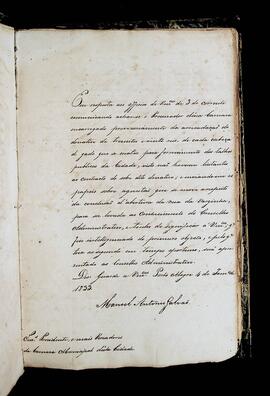 Em resposta ao officio de Vm.ces de 3 do corrente
communicando achar-se o Procurador dessa Camara
encarregado provisoriamente da arrecadação do
donativo de trezentos e vinte reis de cada cabeça
de gado que se matar para fornecimento dos talhos
publicos da Cidade, visto não haver licitante
ao contracto do sobredito donativo; e mandando-me os
papeis sobre aquelles que se a respeito
da abertura da rua da Varginha,
para ser levado ao conhecimento do Conselho
Administrativo, tenho de significar a Vm.ces q'
fico inteligenciado do primeiro objecto, e pelo q'
toca ao segundo em tempo opportuno, será apre-
sentado ao Conselho Administrativo.
Deos Guarde a Vm.ces Porto Alegre 4 de Janr.o de
1833
Manoel Antonio Galvão
Snr.es Presidente, e mais Vereadores
da Camara Municipal desta Cidade